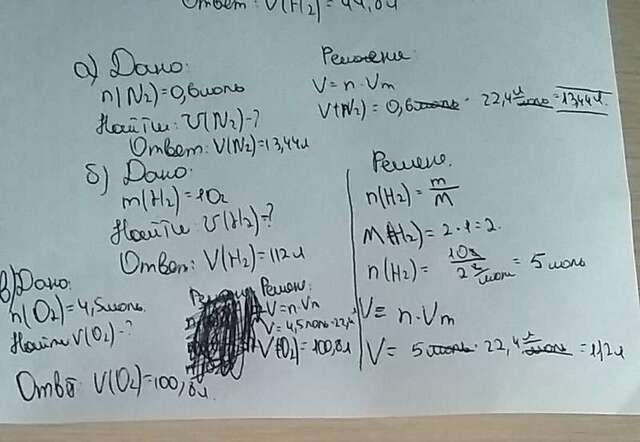 Ответ: V(H₂)=44,8л
а) Дано:
n(N₂)=0,6моль
Найти: V(N₂)-?
Ответ: V(N₂)=13,44л
Решение:
V=n·Vm
V(N₂)=0,6моль·22,4л/моль=13,44л.
б) Дано:
m(H₂)=10г
Найти: V(H₂)-?
Ответ: V(H₂)=112л
Решение.
n(H₂)=m/M
M(H₂)=2·1=2.
n(H₂)=10г/2г/моль=5моль
V=n·Vm
V=5моль·22,4л/моль=112л
в) Дано:
n(O₂)=4,5моль.
Найти V(O₂)-?
Решен:
V=n·Vm
V=4,5моль·22,4
V(O₂)=100,8л
Ответ: V(O₂)=100,8л.